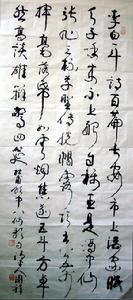 李白一斗詩百篇長安市上酒家眠
天子呼來不上船自稱臣是酒中仙
張旭三杯草聖傳脫帽露頂王公前
揮毫落紙如雲煙焦遂五斗方卓
然高談雄辯驚四筵 飲中八仙歌